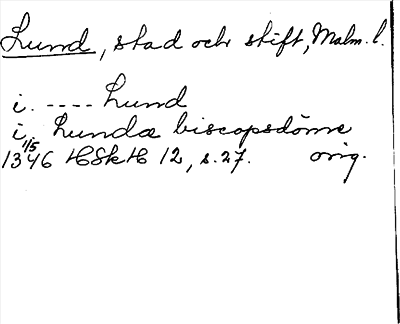 Lund, stad och stift, Malm. l.
i. ---- Lund
i. Lundæ biscopsdöme
1346 1/5 HSkH 12, s. 27. orig.